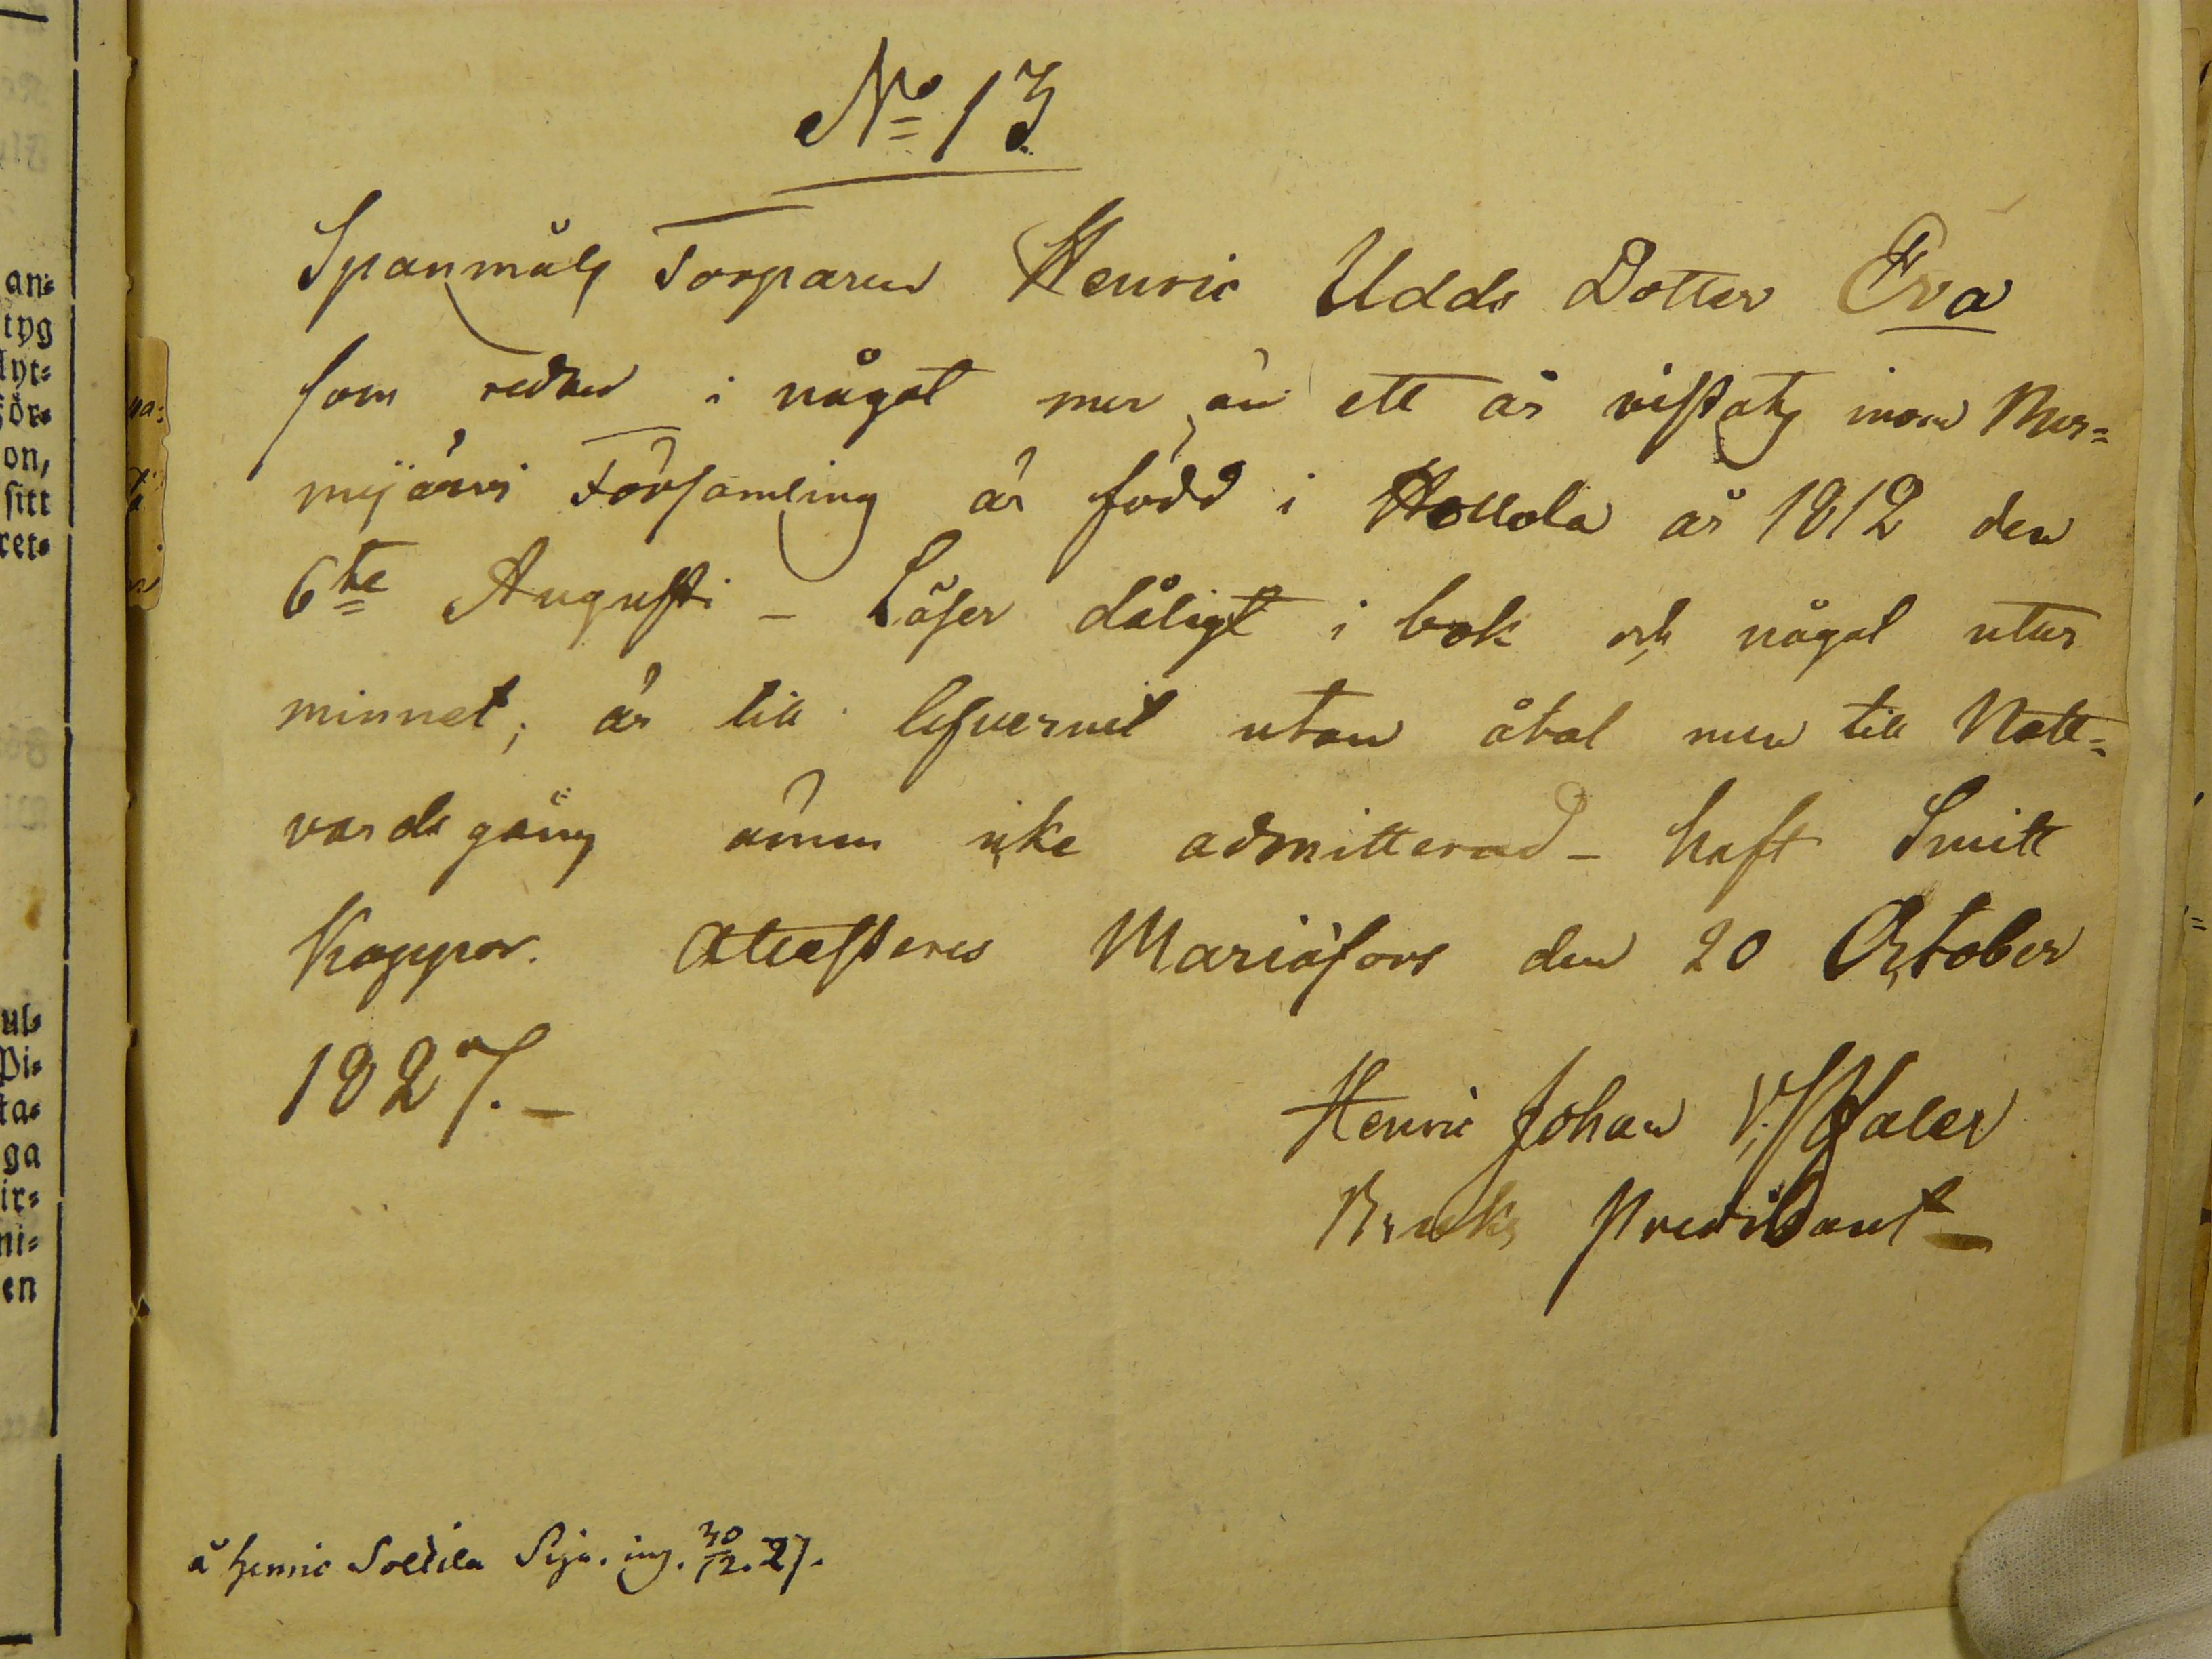 No 13
Spanmåls Torparen Henric Udds Dotter Eva
som redan i något mer än ett år vistats inom Nur=
mijärvi Församling är född i Hollola år 1812 den
6te Augusti - Läser dåligt i bok och något utur
minnet, är till lefvernet utan åtal men till Natt=
vardsgång ännu icke admitterad - haft Smitt
Koppor. Attesteres Mariæfors den 20 October
1827. -
Henric Johan
Bruks Predikant -
å Henric Soltila Piga. ing. 30/12. 27.
an=
tyg
lyt=
för=
on,
sitt
ret=
ul=
Pi=
ta=
ga
ir=
ni=
en